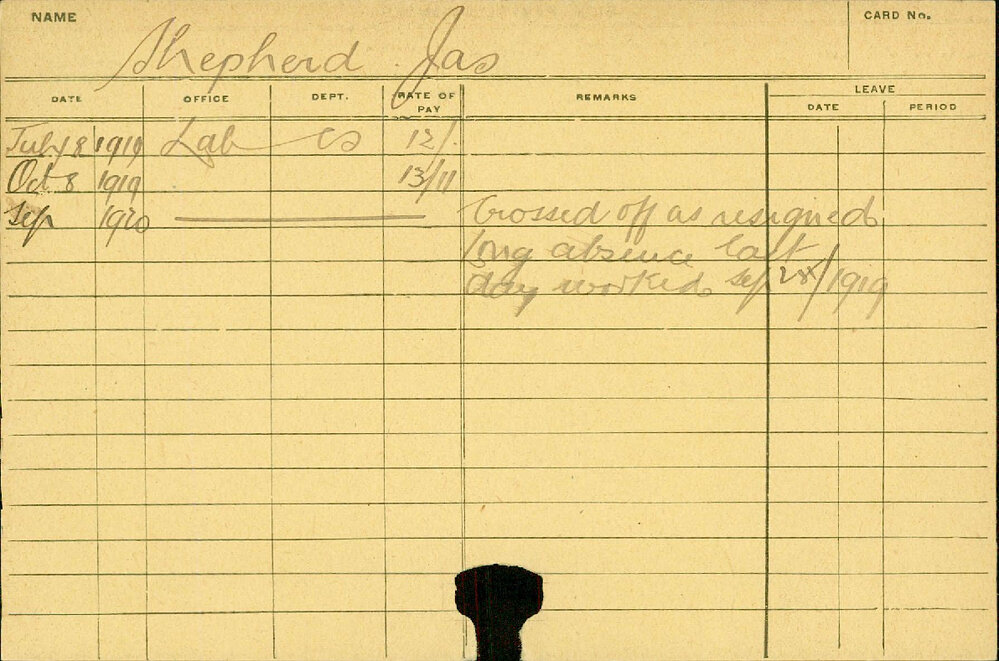 NAME
CARD No.
Shepherd Jas
DATE OFFICE DEPT. RATE OF PAY REMARKS LEAVE
DATE PERIOD
July 8 1919 Lab CS 12/.
Oct 8 1919 13/11
Sep 1920 Crossed off as resigned
long absence last
day worked Sep 28/1919